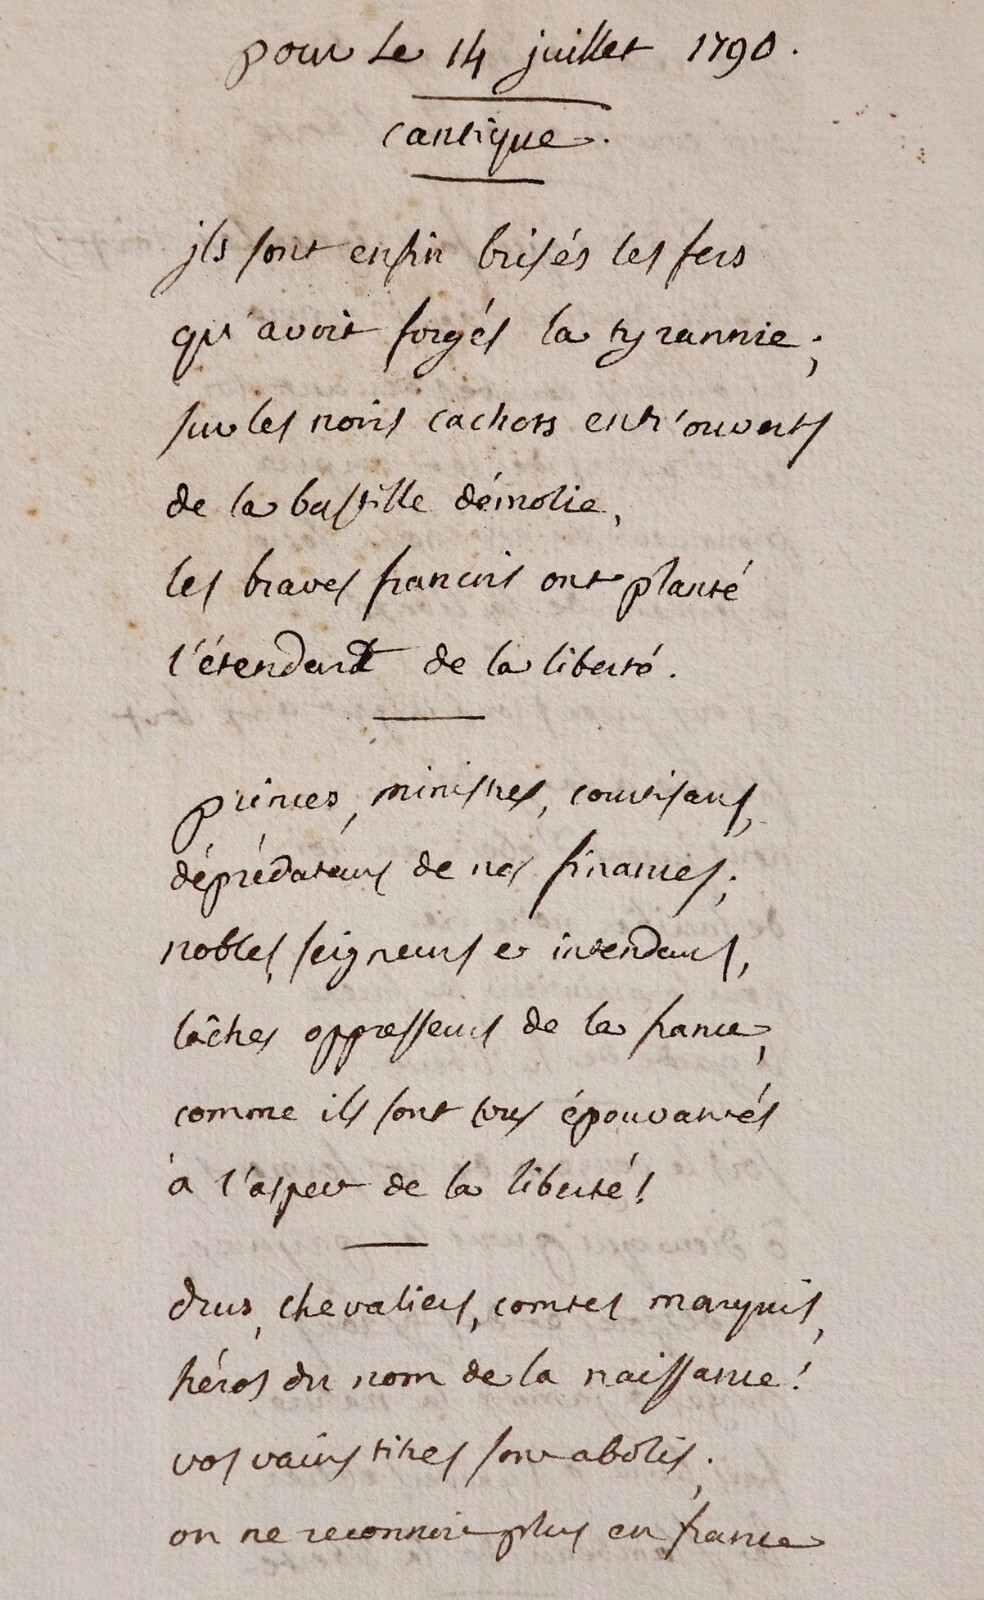 pour le 14 juillet 1790.
cantique.
jls sont enfin brisés les fers
qu'avoit forgés la tyrannie;
sur les noirs cachots entr'ouverts
de la bastille démolie,
les braves francois ont planté
l'étendart de la liberté.
princes, ministres, courtisans,
déprédateurs de nos finances;
nobles, seigneurs et intendans,
lâches oppresseurs de la france,
comme ils sont tous épouvantés
à l'aspect de la liberté!
ducs, chevaliers, comtes marquis,
héros du nom de la naissance!
vos vains titres sont abolis;
on ne reconnoit plus en france